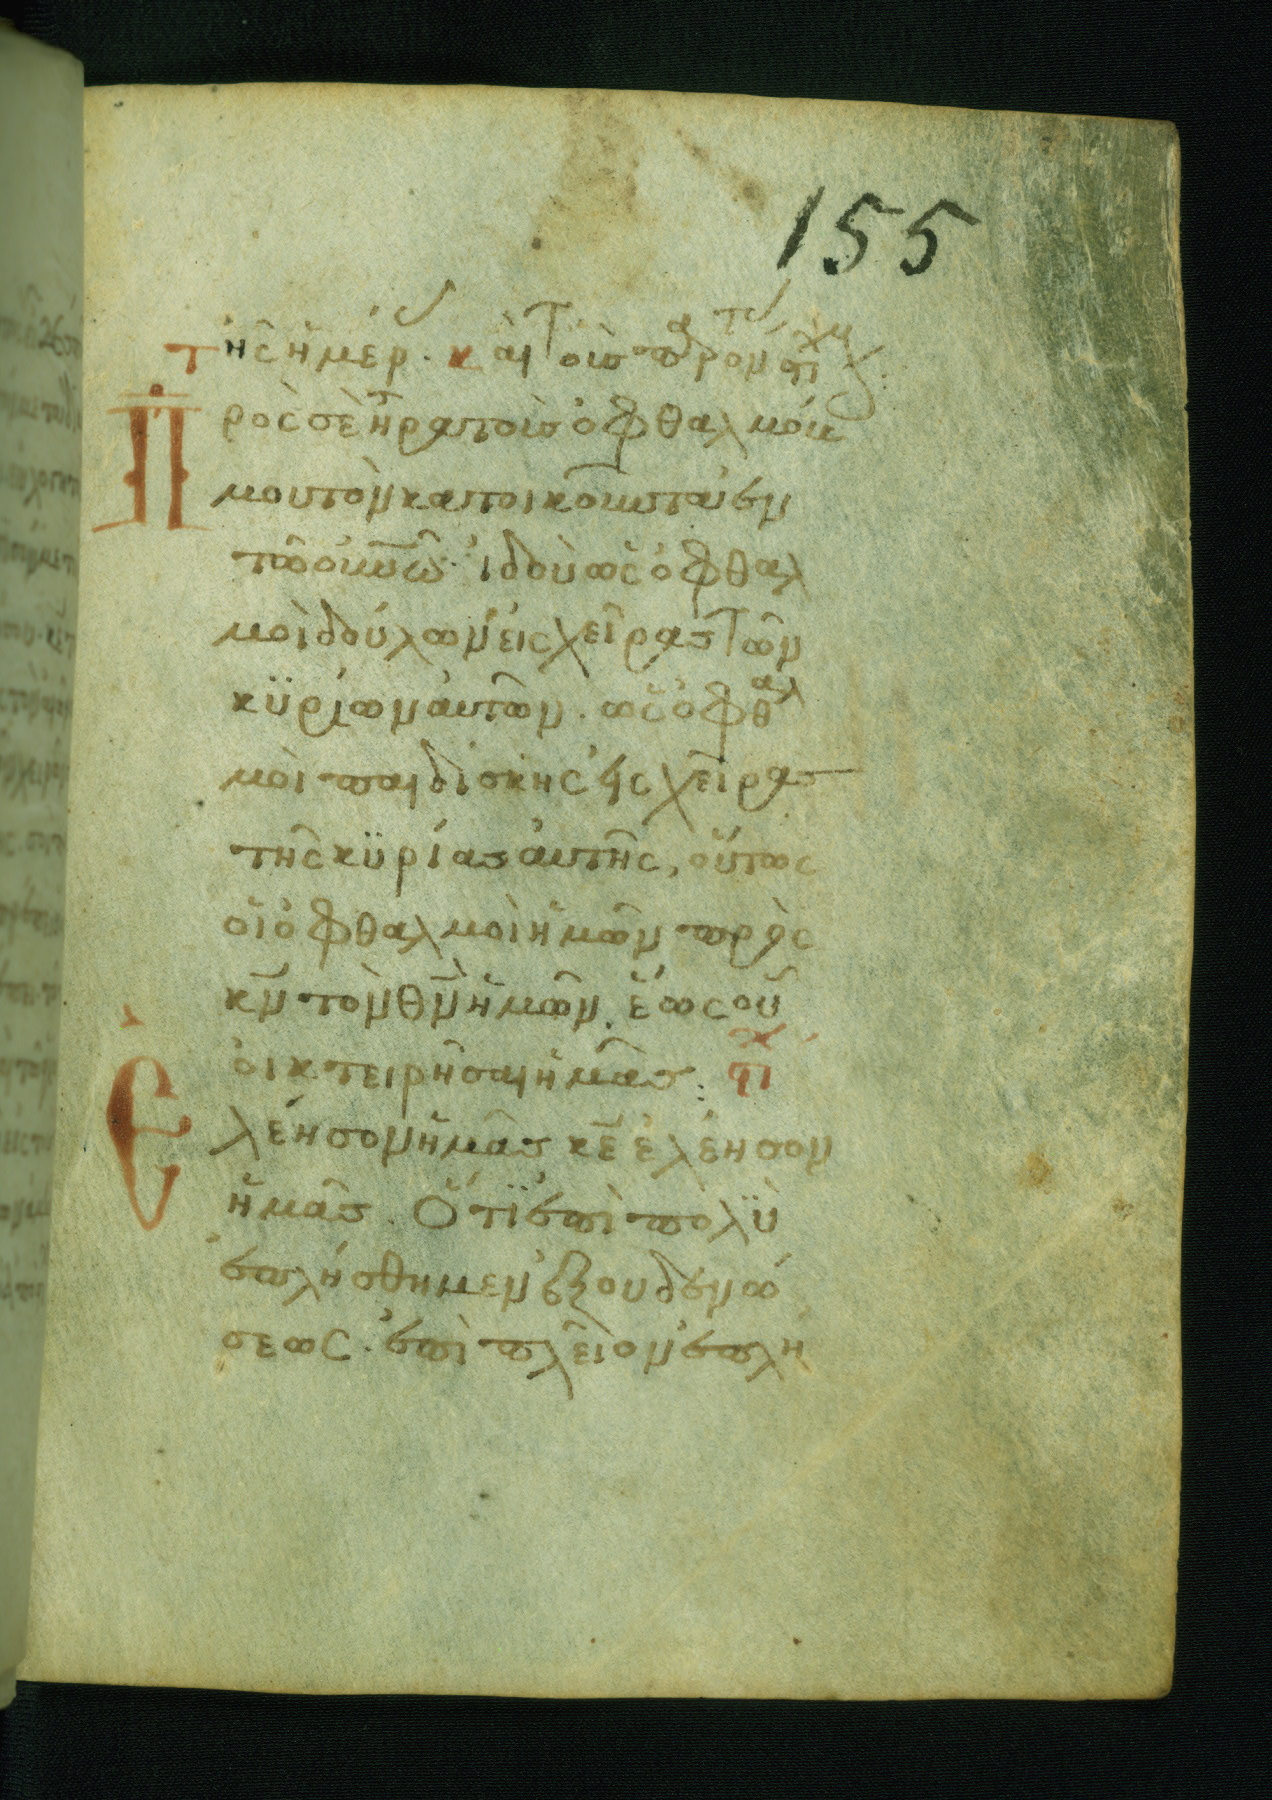 155
τῆς ἡμέρ. καὶ τοῖς
Πρὸς σὲ ἦρα τοὺς ὀφθαλμούς
μου τὸν κατοικοῦντα ἐν
τῶ οὐνῶ· ἰδοὺ ὡς ὀφθαλ
μοὶ δούλων εἰς χεῖρας τῶν
κϋρίων αὐτῶν. ὡς ὀφθαλ
μοὶ παιδίσκης εἰς χεῖρας
τῆς κϋρίας αὐτῆς, οὕτως
οἱ ὀφθαλμοὶ ἡμῶν πρὸς
κ̅ν̅ τὸν θ̅ν̅ ἡμῶν, ἕως οὗ
οἰκτειρῆσαι ἡμᾶς: στιχ
Ἐλέησον ἡμᾶς κ̅ε̅ ἐλέησον
ἡμᾶς. Ὅτϊ ἐπὶ πολϋ
ἐπλήσθημεν ἐξουδενώ
σεως. ἐπὶ πλεῖον ἐπλή